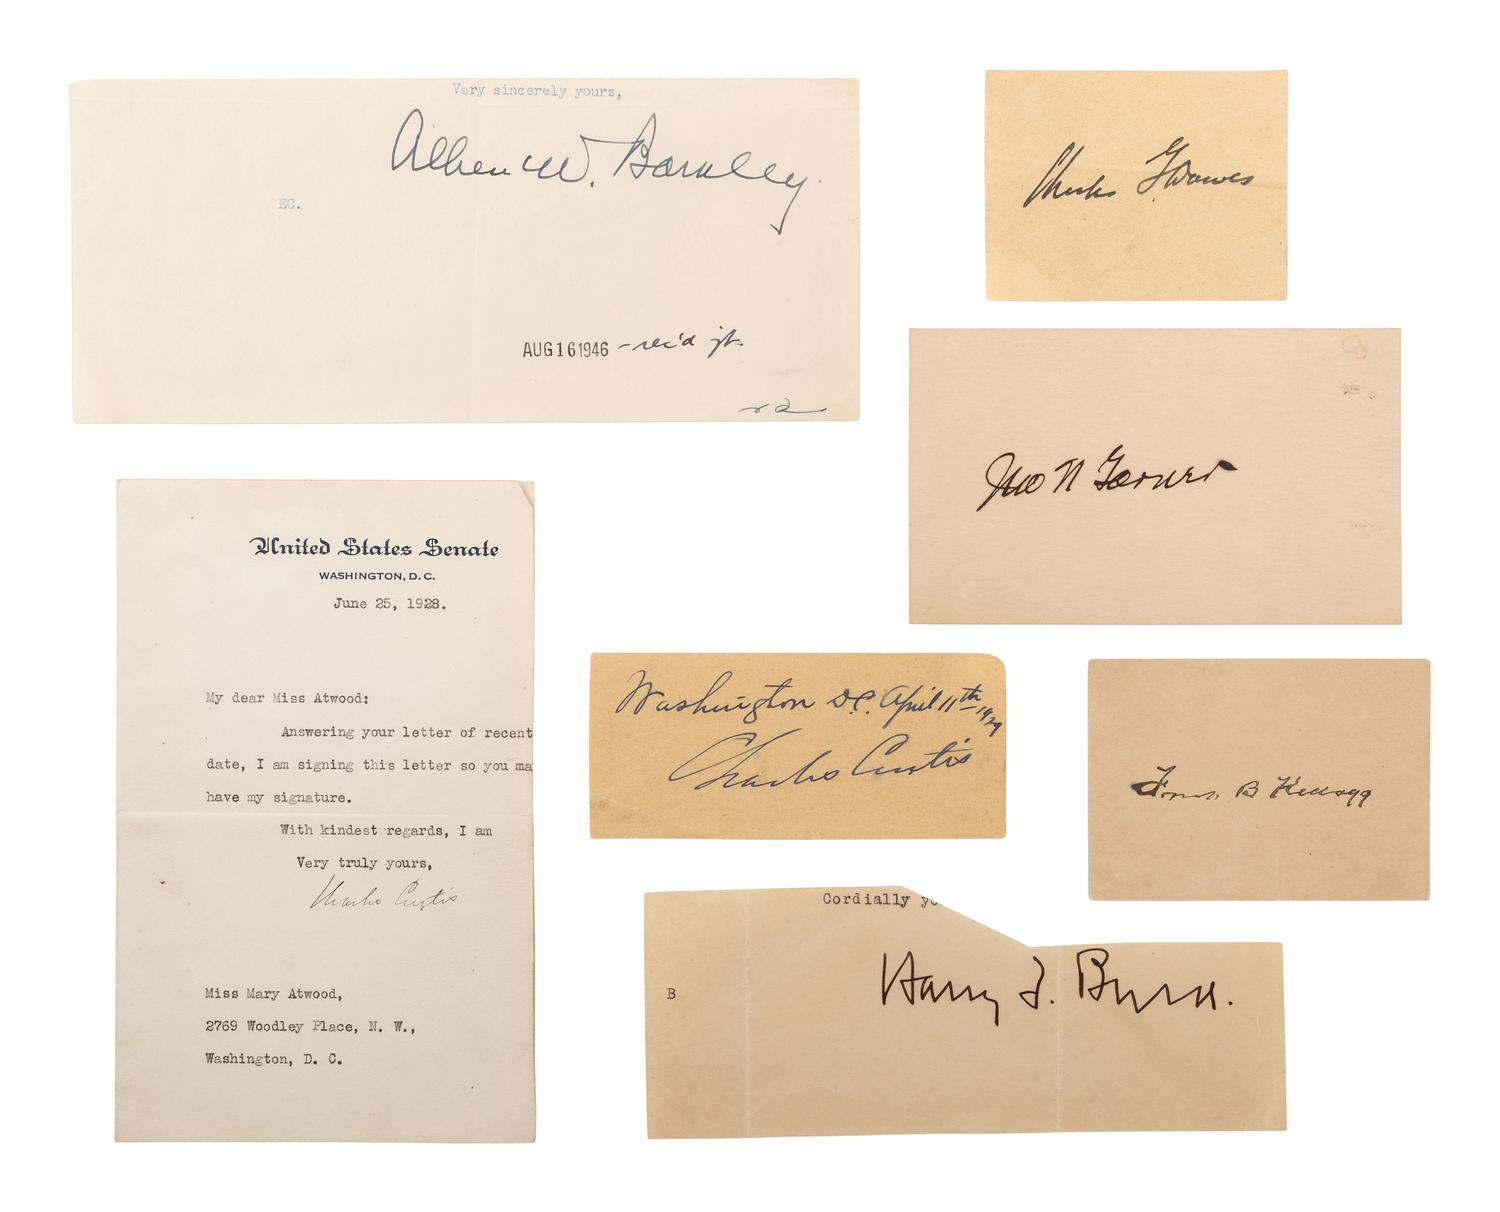 Very sincerely yours,
Alben W. Barkley
EC.
AUG 16 1946 - rec'd
Charles G. Dawes
Jno N Garner
United States Senate
WASHINGTON, D. C.
June 25, 1928.
My dear Miss Atwood:
Answering your letter of recent
date, I am signing this letter so you ma
have my signature.
With kindest regards, I am
Very truly yours,
Charles Curtis
Miss Mary Atwood,
2769 Woodley Place, N. W.,
Washington, D. C.
Washington D.C. April 11th 1929
Charles Curtis
Frank B Kellogg
Cordially yo
Harry F. Byrd.
B